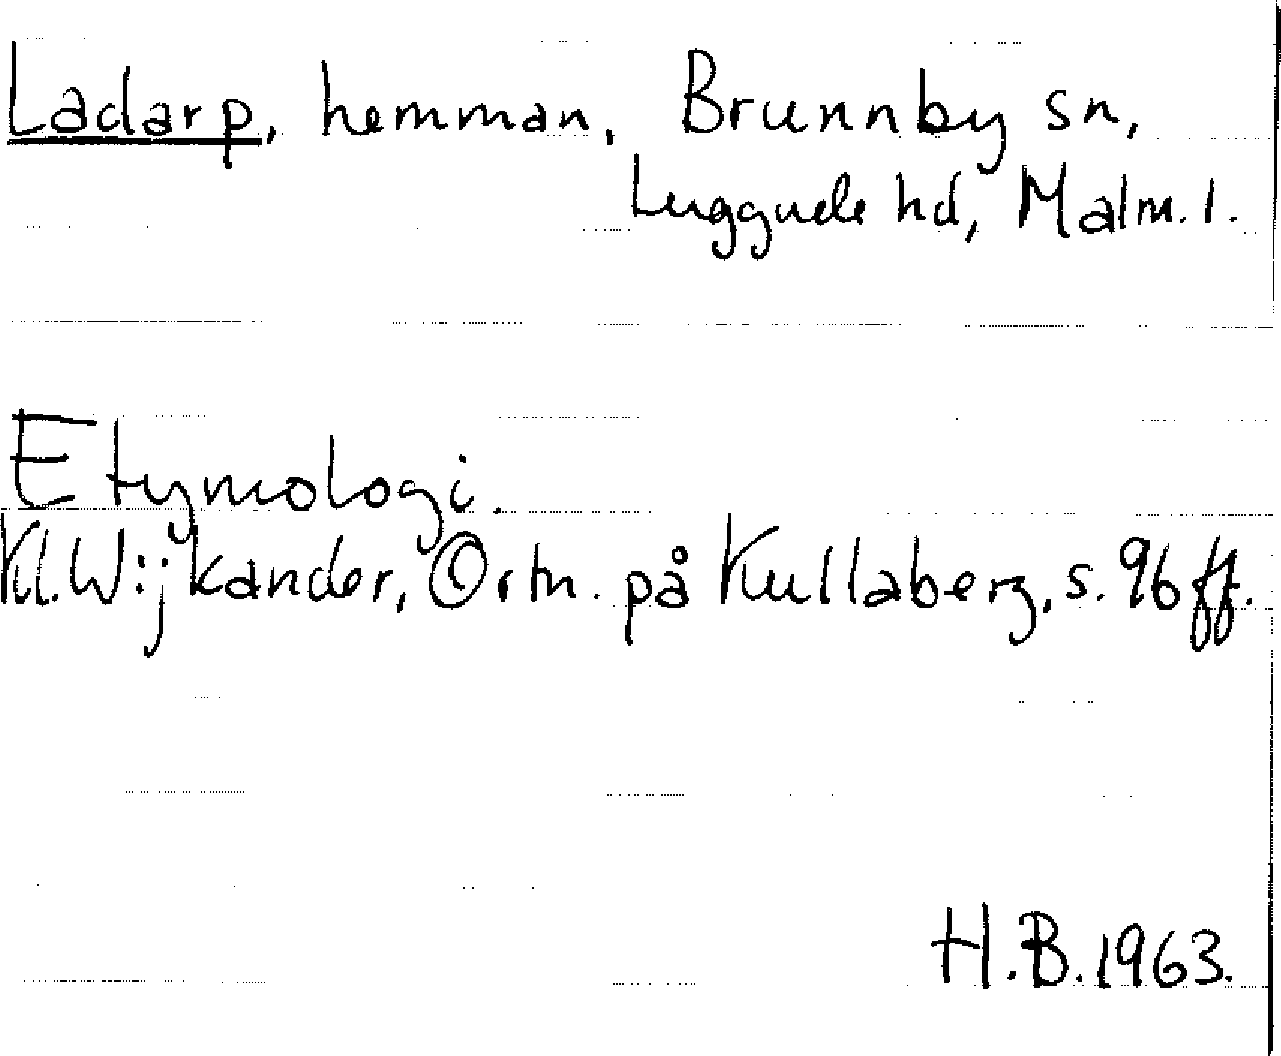 Ladarp, hemman, Brunnby sn,
Luggude hd, Malm. l.
Etymologi.
Kl. Wijkander, Ortn. på Kullaberg, s. 96 ff.
H.B. 1963.